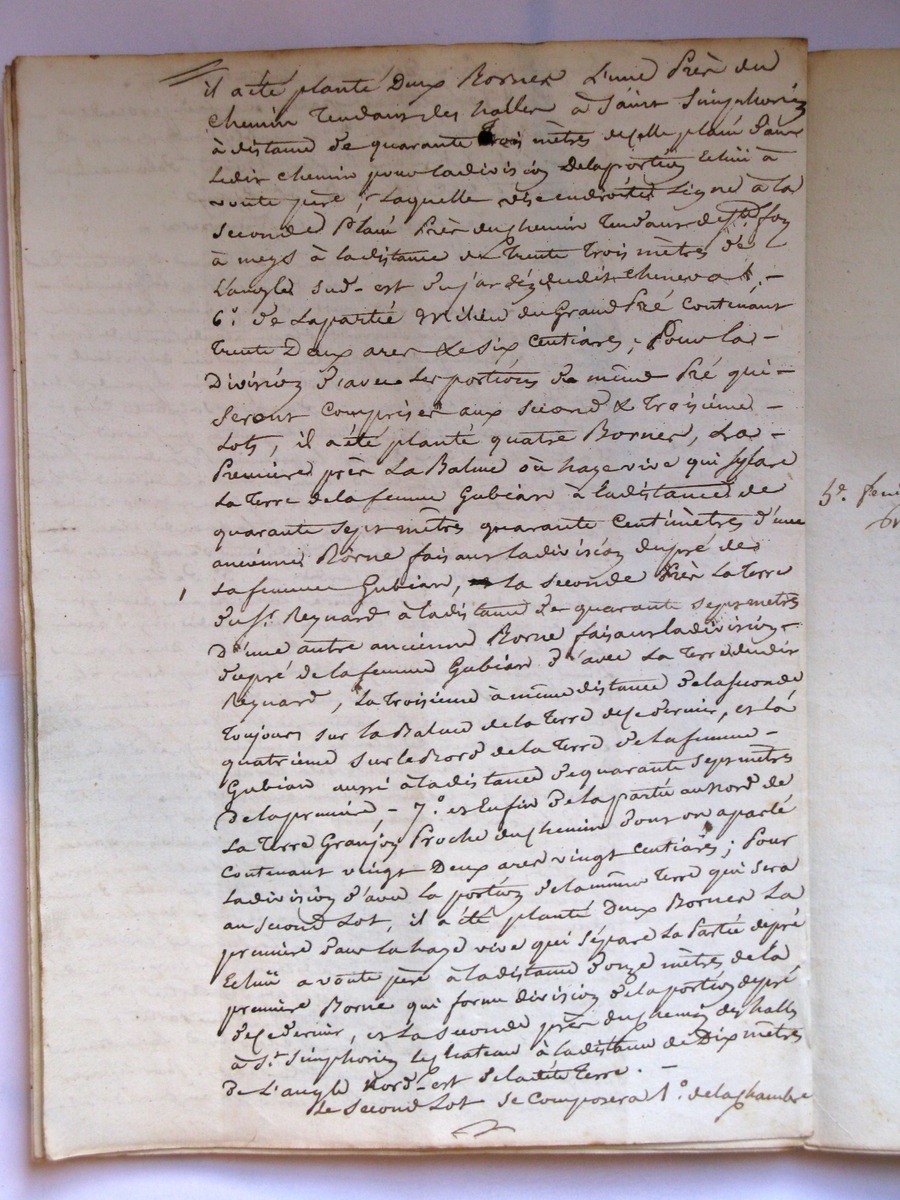 il a été planté Deux Bornes L'une Près du
chemin Tendant des halles à Saint Simphorien
à distance de quarante trois mètres de celle plantée dans
Ledit chemin pour la division de la portion Echüe à
voute père, Laquelle vise en droite Ligne à la
seconde Planté Près du chemin Tendant de Ste foy
à meys à la distance de Trente Trois mètres de
L'angle sud-est du jardin dudit cheneval. -
6.° de La partie milieu du Grand Pré contenant
trente Deux ares & six centiares; Pour la -
Division d'avec les portions de même Pré qui -
seront comprises aux second & troisième -
Lots, il a été planté quatre Bornes, La -
Première près La Balme où haye vive qui sépare
La Terre de la femme Gubian à la distance de
quarante sept mètres quarante centimètres d'une
ancienne Borne faisant la division du pré de
la femme Gubian, la seconde Près La Terre
du Sr. Reynard à la distance de quarante sept mètres
D'une autre ancienne Borne faisant la division -
du pré de la femme Gubian d'avec La Terre dudit
Reynard, La troisième à même distance de la seconde
Toujours sur la Balme de la Terre de ce dernier, et la
quatrième sur le Bord de la Terre de la femme -
Gubian aussi à la distance de quarante sept mètres
De la première, - 7.° et Enfin de la partie au Nord de
La Terre Granjon Proche du chemin dont on a parlé
contenant vingt Deux ares vingt centiares; Pour
La division d'avec la portion de la même Terre qui sera
au second Lot, il a été planté Deux Bornes La
première dans la haye vive qui sépare La Partie de pré
Echüe a voute père à la distance d'onze mètres de la
première Borne qui forme division de la portion de pré
de ce dernier, et La seconde près du chemin des halles
à St. Simphorien le chateau à la distance de Dix mètres
de L'angle Nord-est de la dite Terre. -
Le second Lot se composera 1.° de la chambre
5e. feui